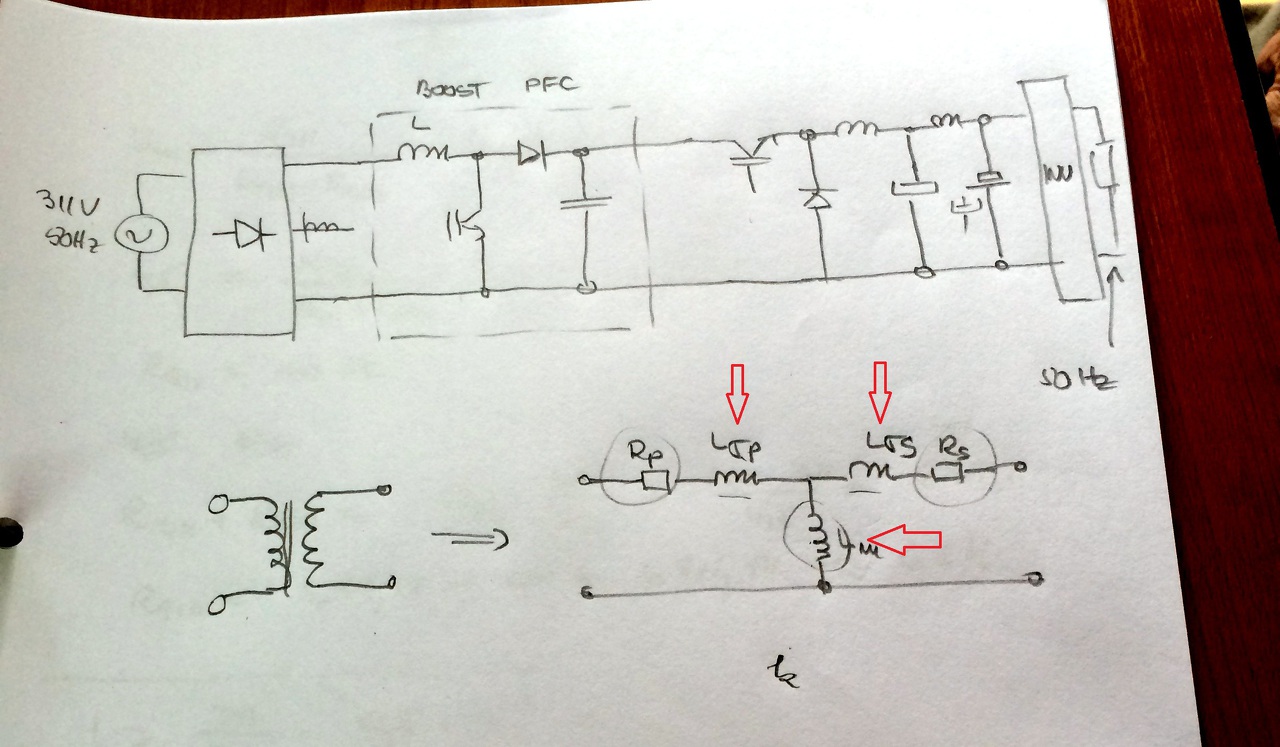 BOOST PFC
L
311V
50Hz
INV
50 Hz
Rp
LσP
LσS
Rs
Lm